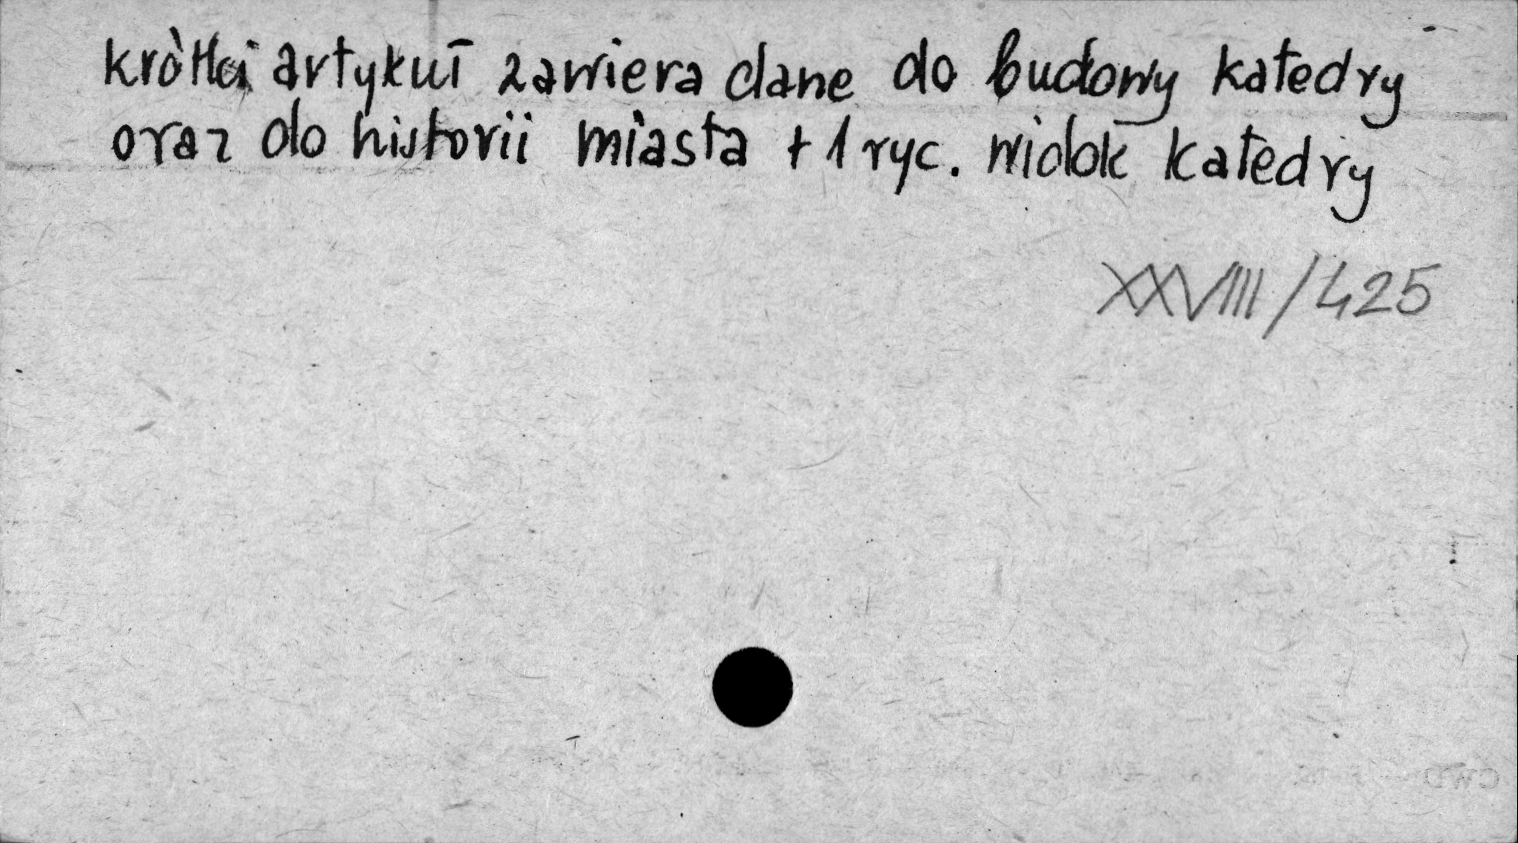 krótki artykuł zawiera dane do budowy katedry
oraz do historii miasta + 1 ryc. widok katedry
XXVIIII/425